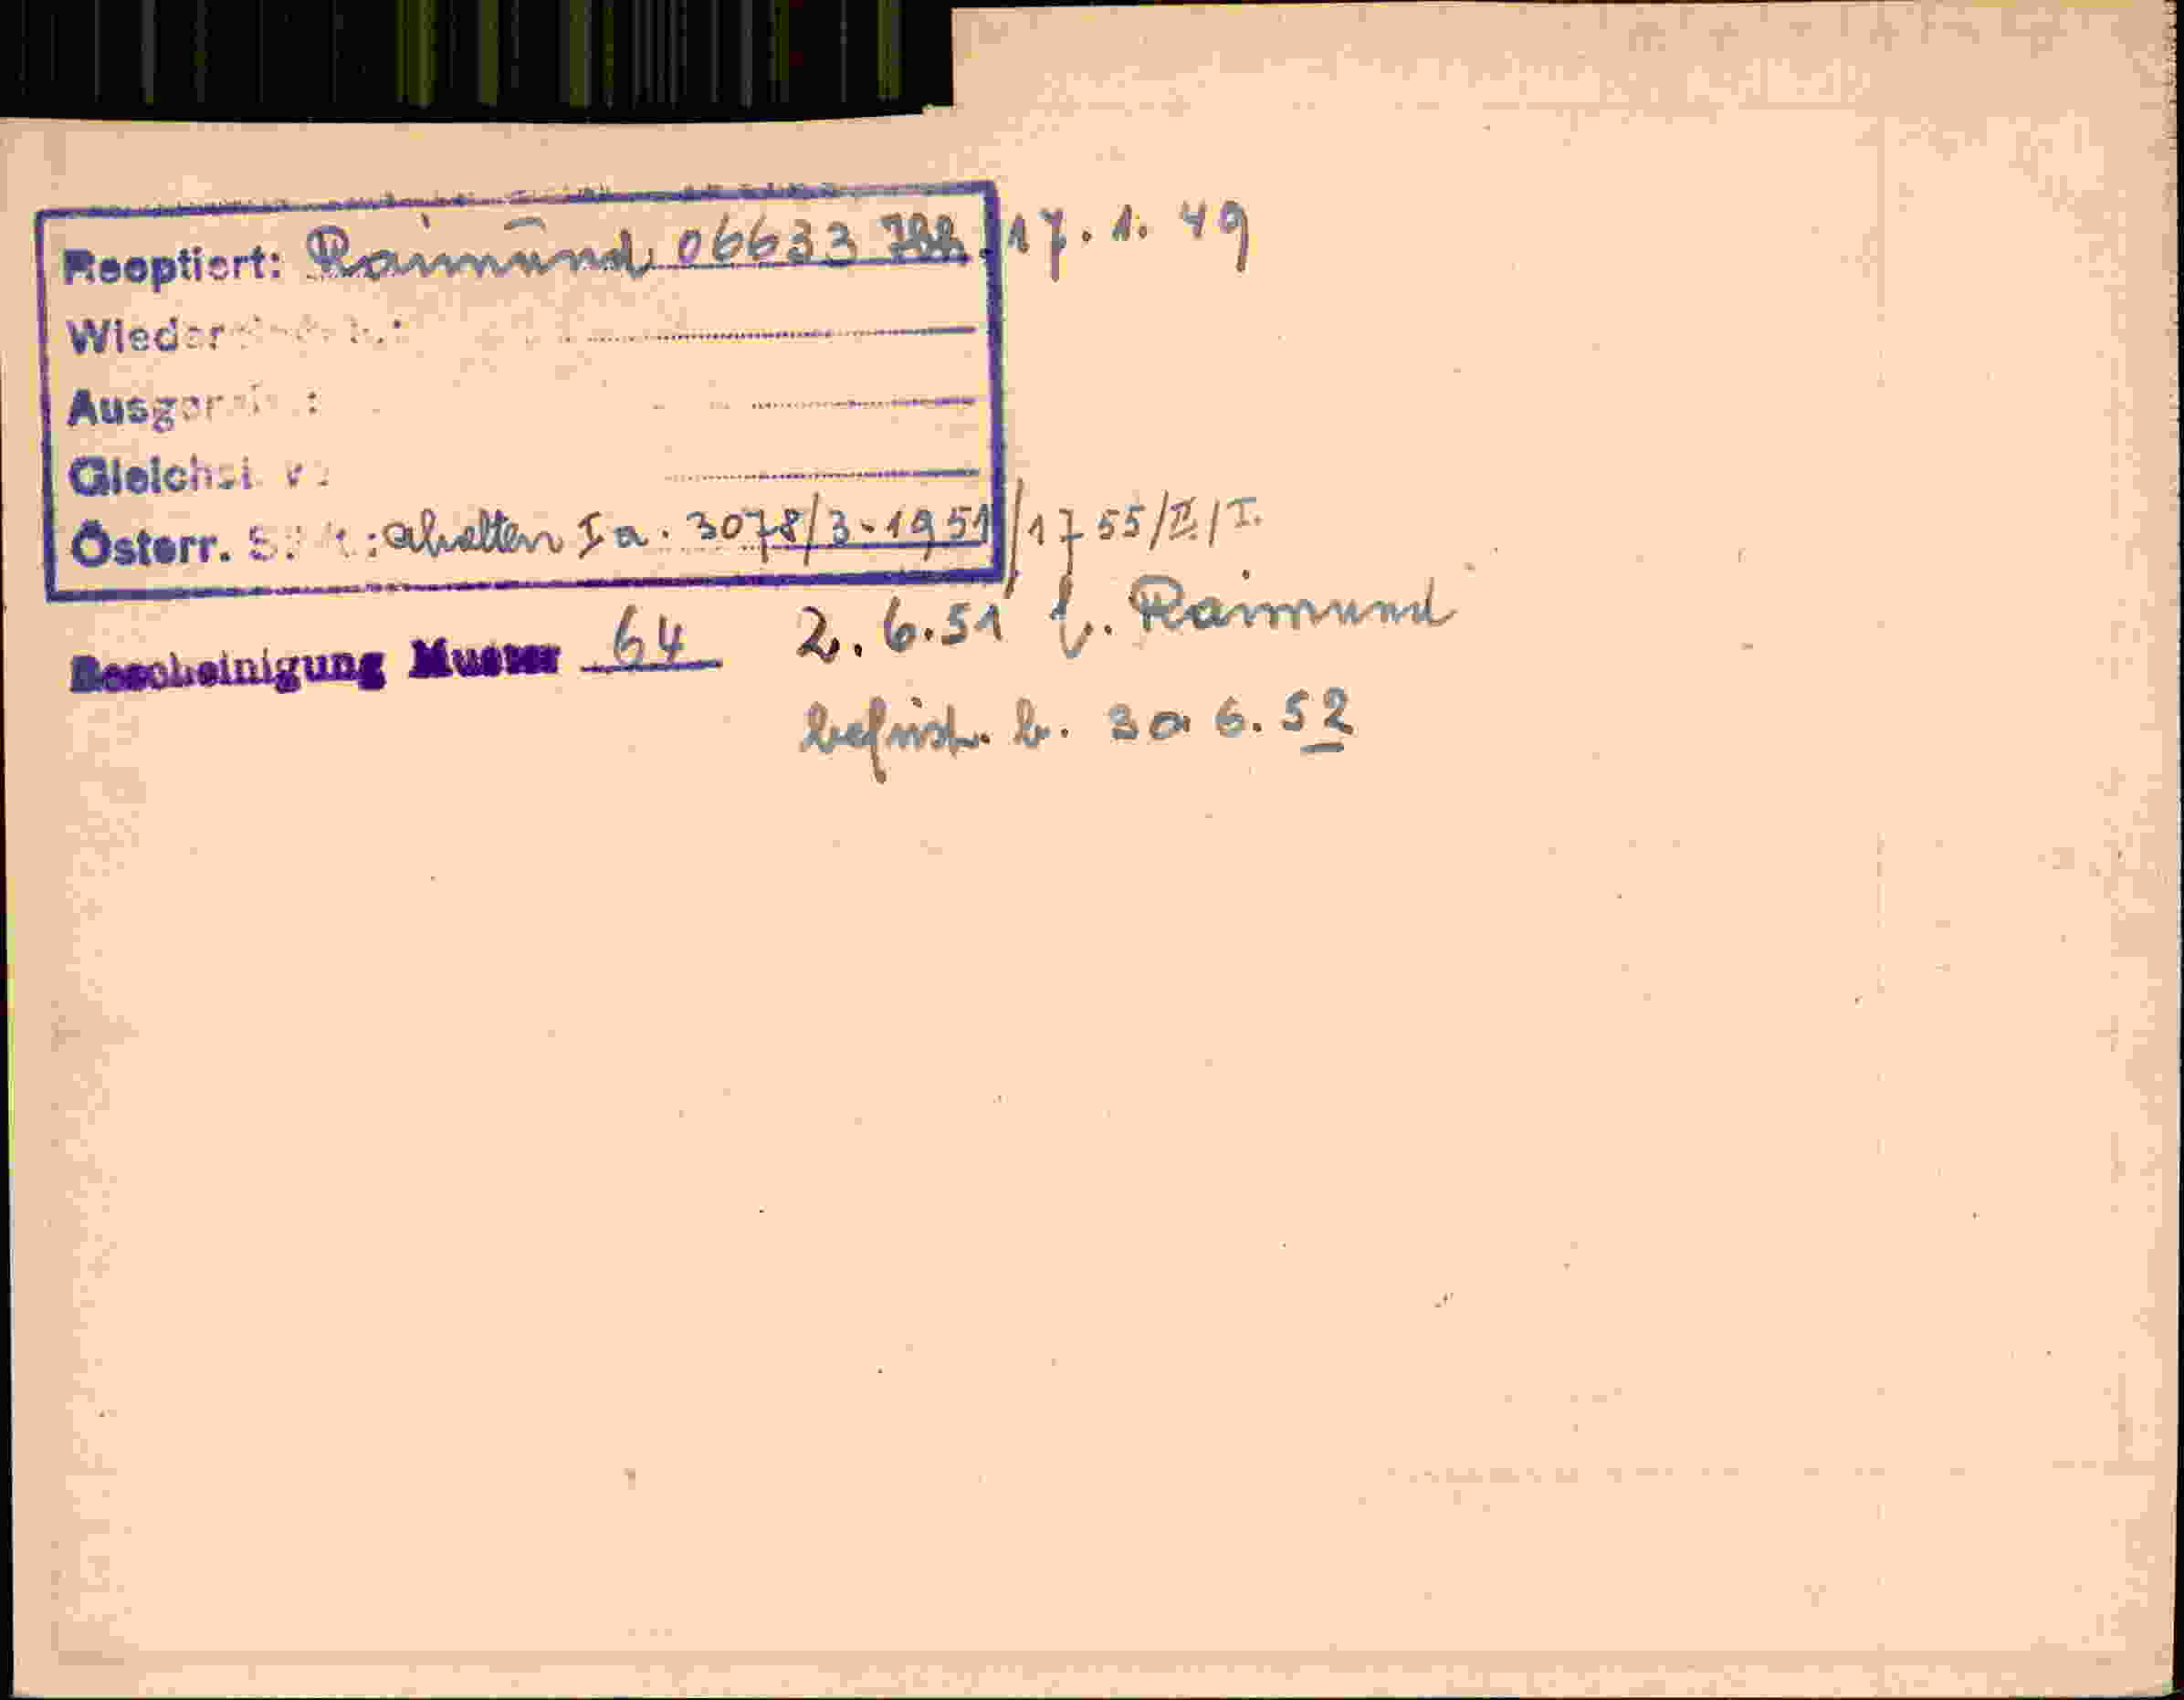 Reoptiert: Raimund 06633 788. 17. 1. 49
Wieder
Ausger
Gleichst
Österr. St. A.: erhalten I a. 3078/3-1951/1755/II/I.
Bescheinigung Muster 64 2. 6. 51 f. Raimund
befrist. b. 30. 6. 52